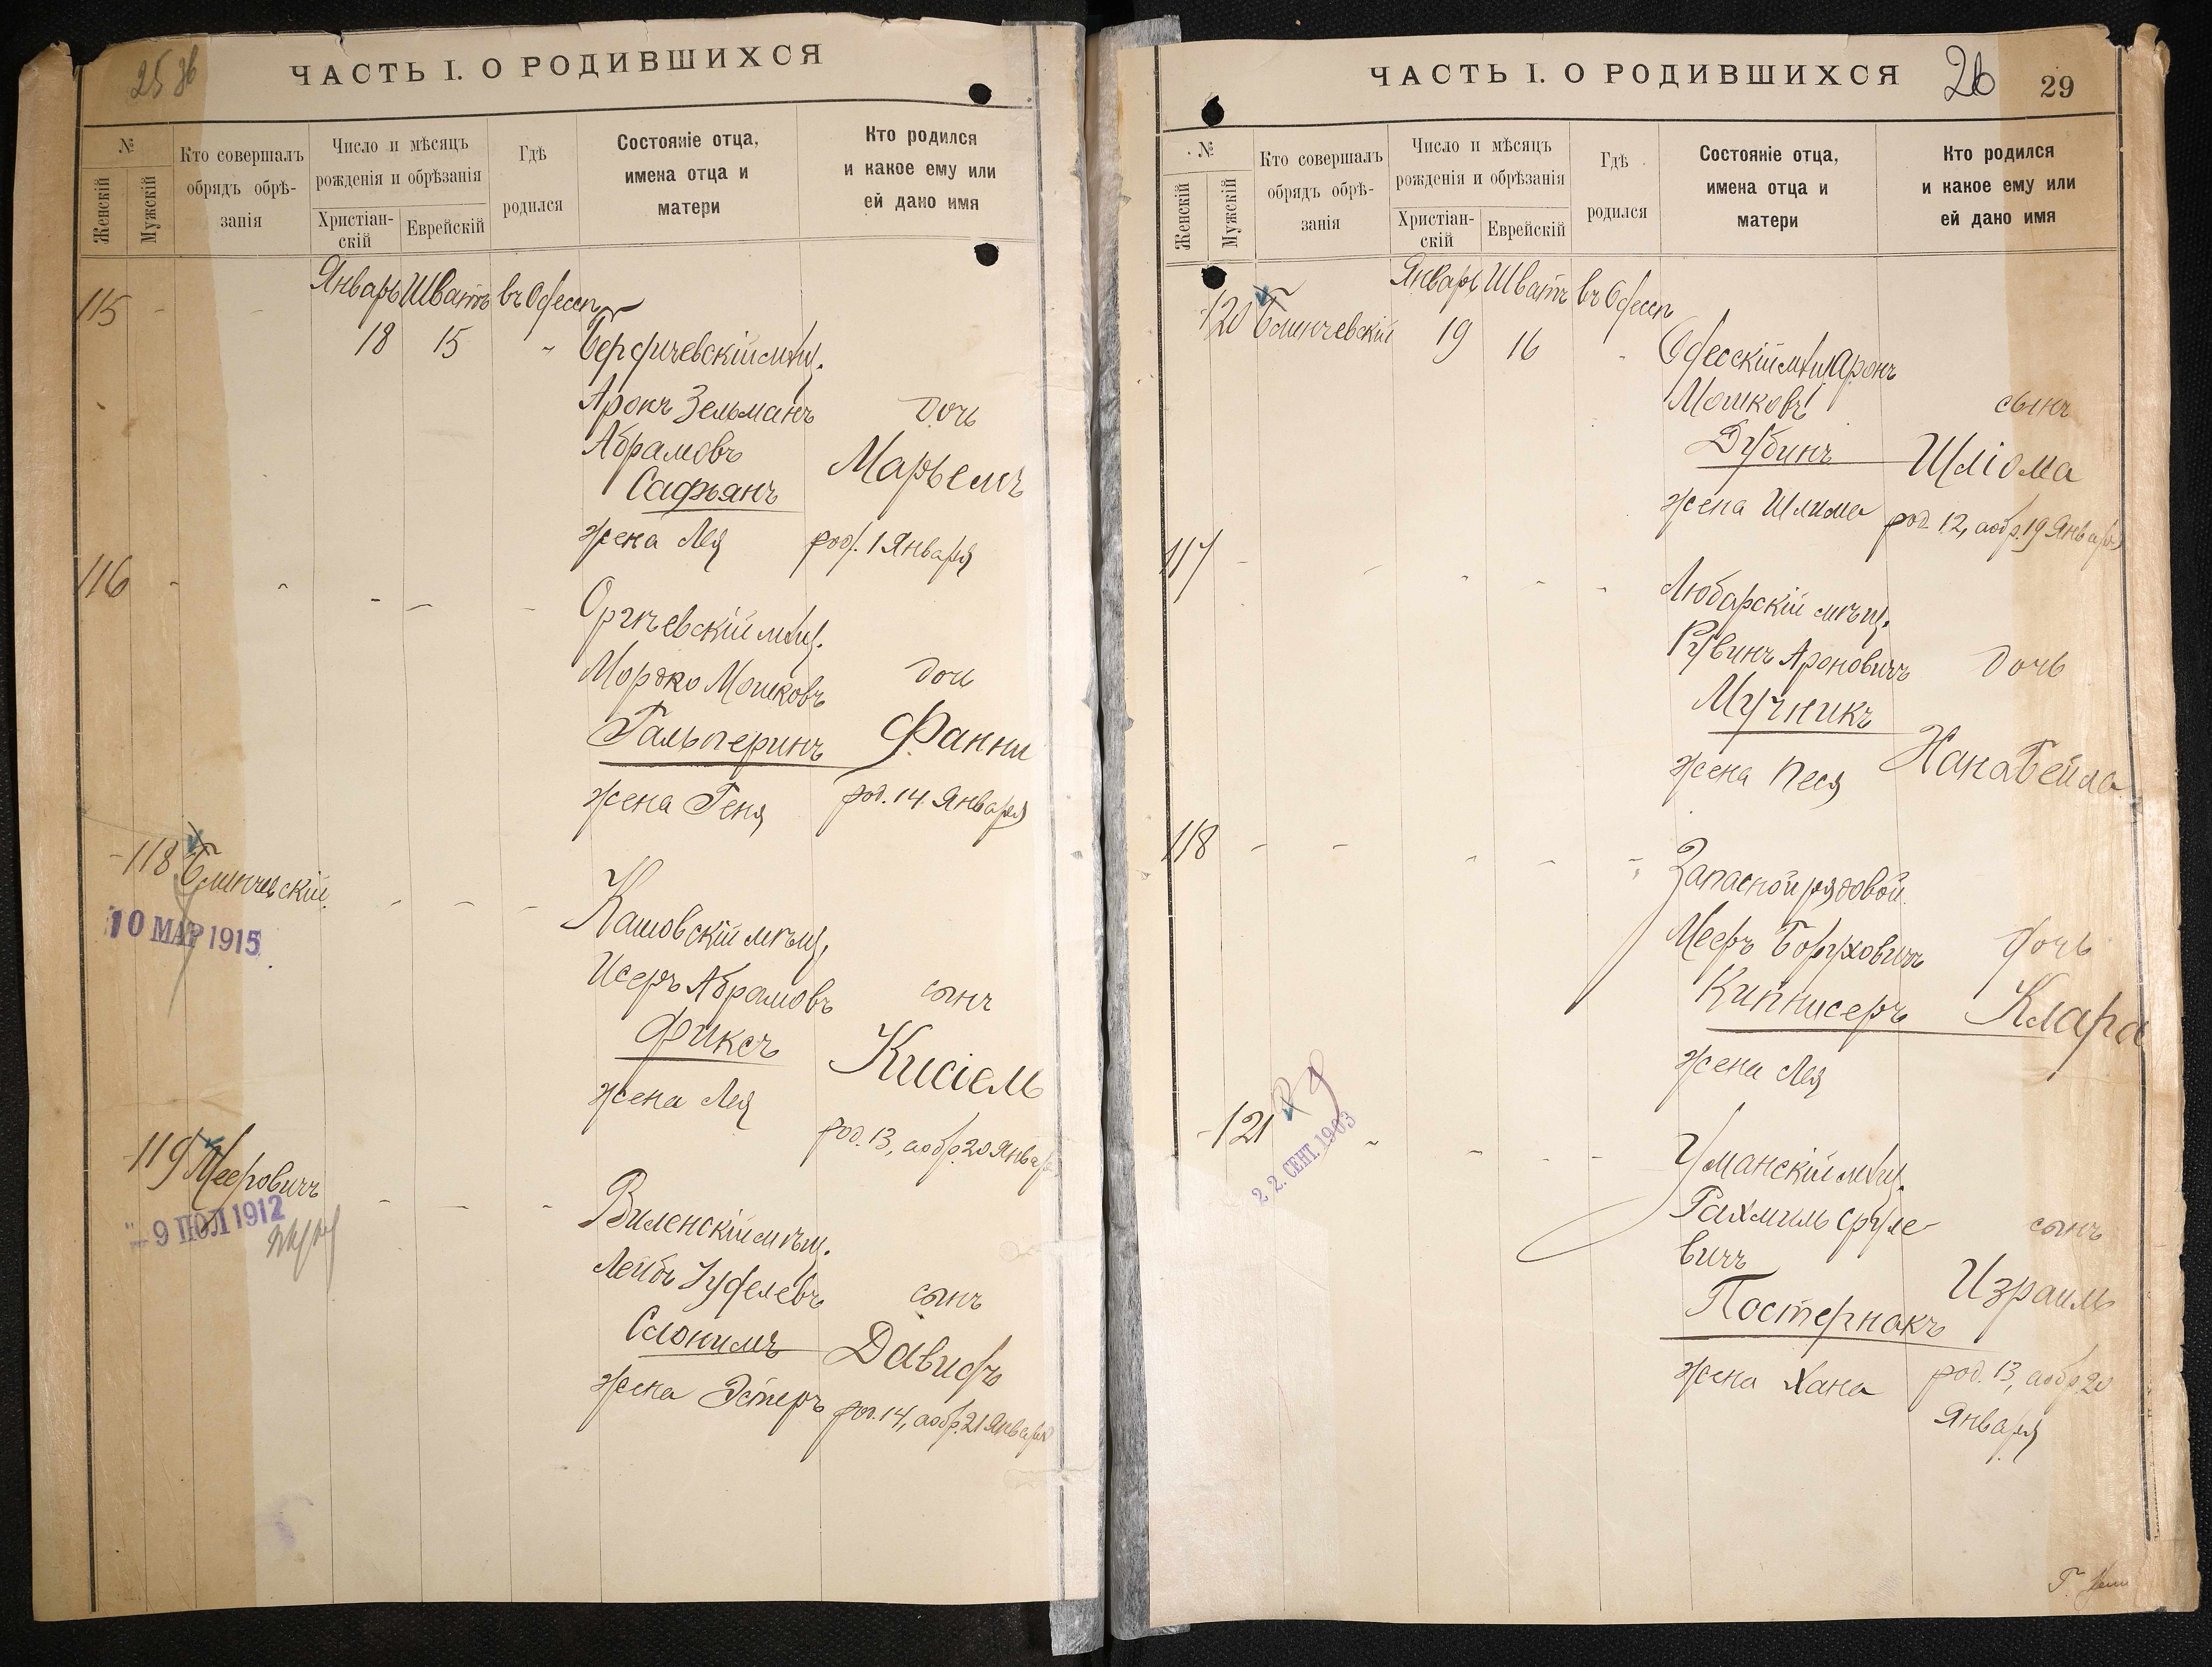 25 зв
ЧАСТЬ I. О РОДИВШИХСЯ
№
Женскій
Мужскій
Кто совершалъ
обрядъ обрѣ-
занія
Число и мѣсяцъ
рожденія и обрѣзанія
Христіан-
скій
Еврейскій
Гдѣ
родился
Состояніе отца,
имена отца и
матери
Кто родился
и какое ему или
ей дано имя
Январь Шватъ въ Одессѣ
115 - - 18 15 „ Бердичевскій мѣщ.
Аронъ Зельманъ дочь
Абрамовъ Марьемъ
Сафьянъ
жена Лея род. 1 Января
116 - - - - - Оргѣевскій мѣщ.
Мордко Мошковъ дочь
Гальперинъ Фанни
жена Геня род. 14 Января
-118 Блинчевскій - - - Кашовскій мѣщ.
10 МАР 1915
Исеръ Абрамовъ сынъ
Фиксъ Кисіель
жена Лея
род. 13, а обр. 20 Январ.
-119 Мееровичъ - - - Виленскій мѣщ.
- 9 ІЮЛ 1912
Лейбъ Іуделевъ сынъ
Слонимъ Давидъ
жена Эстеръ род. 14, а обр. 21 Января
ЧАСТЬ I. О РОДИВШИХСЯ
26
29
№
Женскій
Мужскій
Кто совершалъ
обрядъ обрѣ-
занія
Число и мѣсяцъ
рожденія и обрѣзанія
Христіан-
скій
Еврейскій
Гдѣ
родился
Состояніе отца,
имена отца и
матери
Кто родился
и какое ему или
ей дано имя
Январь Шватъ въ Одессѣ
-120 Блинчевскій 19 16 - Одесскій мѣщ. Аронъ
Мошковъ сынъ
Дубинъ Шліома
жена Шлима род. 12, а обр. 19 Января
117 - - - - - Любарскій мѣщ.
Рувинъ Ароновичъ дочь
Мучникъ
жена Песя Хана Бейла
118 - - - - - Запасной рядовой
Мееръ Боруховичъ дочь
Киппнсеръ Клара
жена Лея
-121 - - - - Уманскій мѣщ.
22. СЕНТ. 1903
Рахмиль Сруле- сынъ
вичъ
Израиль
Постернакъ
жена Хана род. 13, а обр. 20
Января